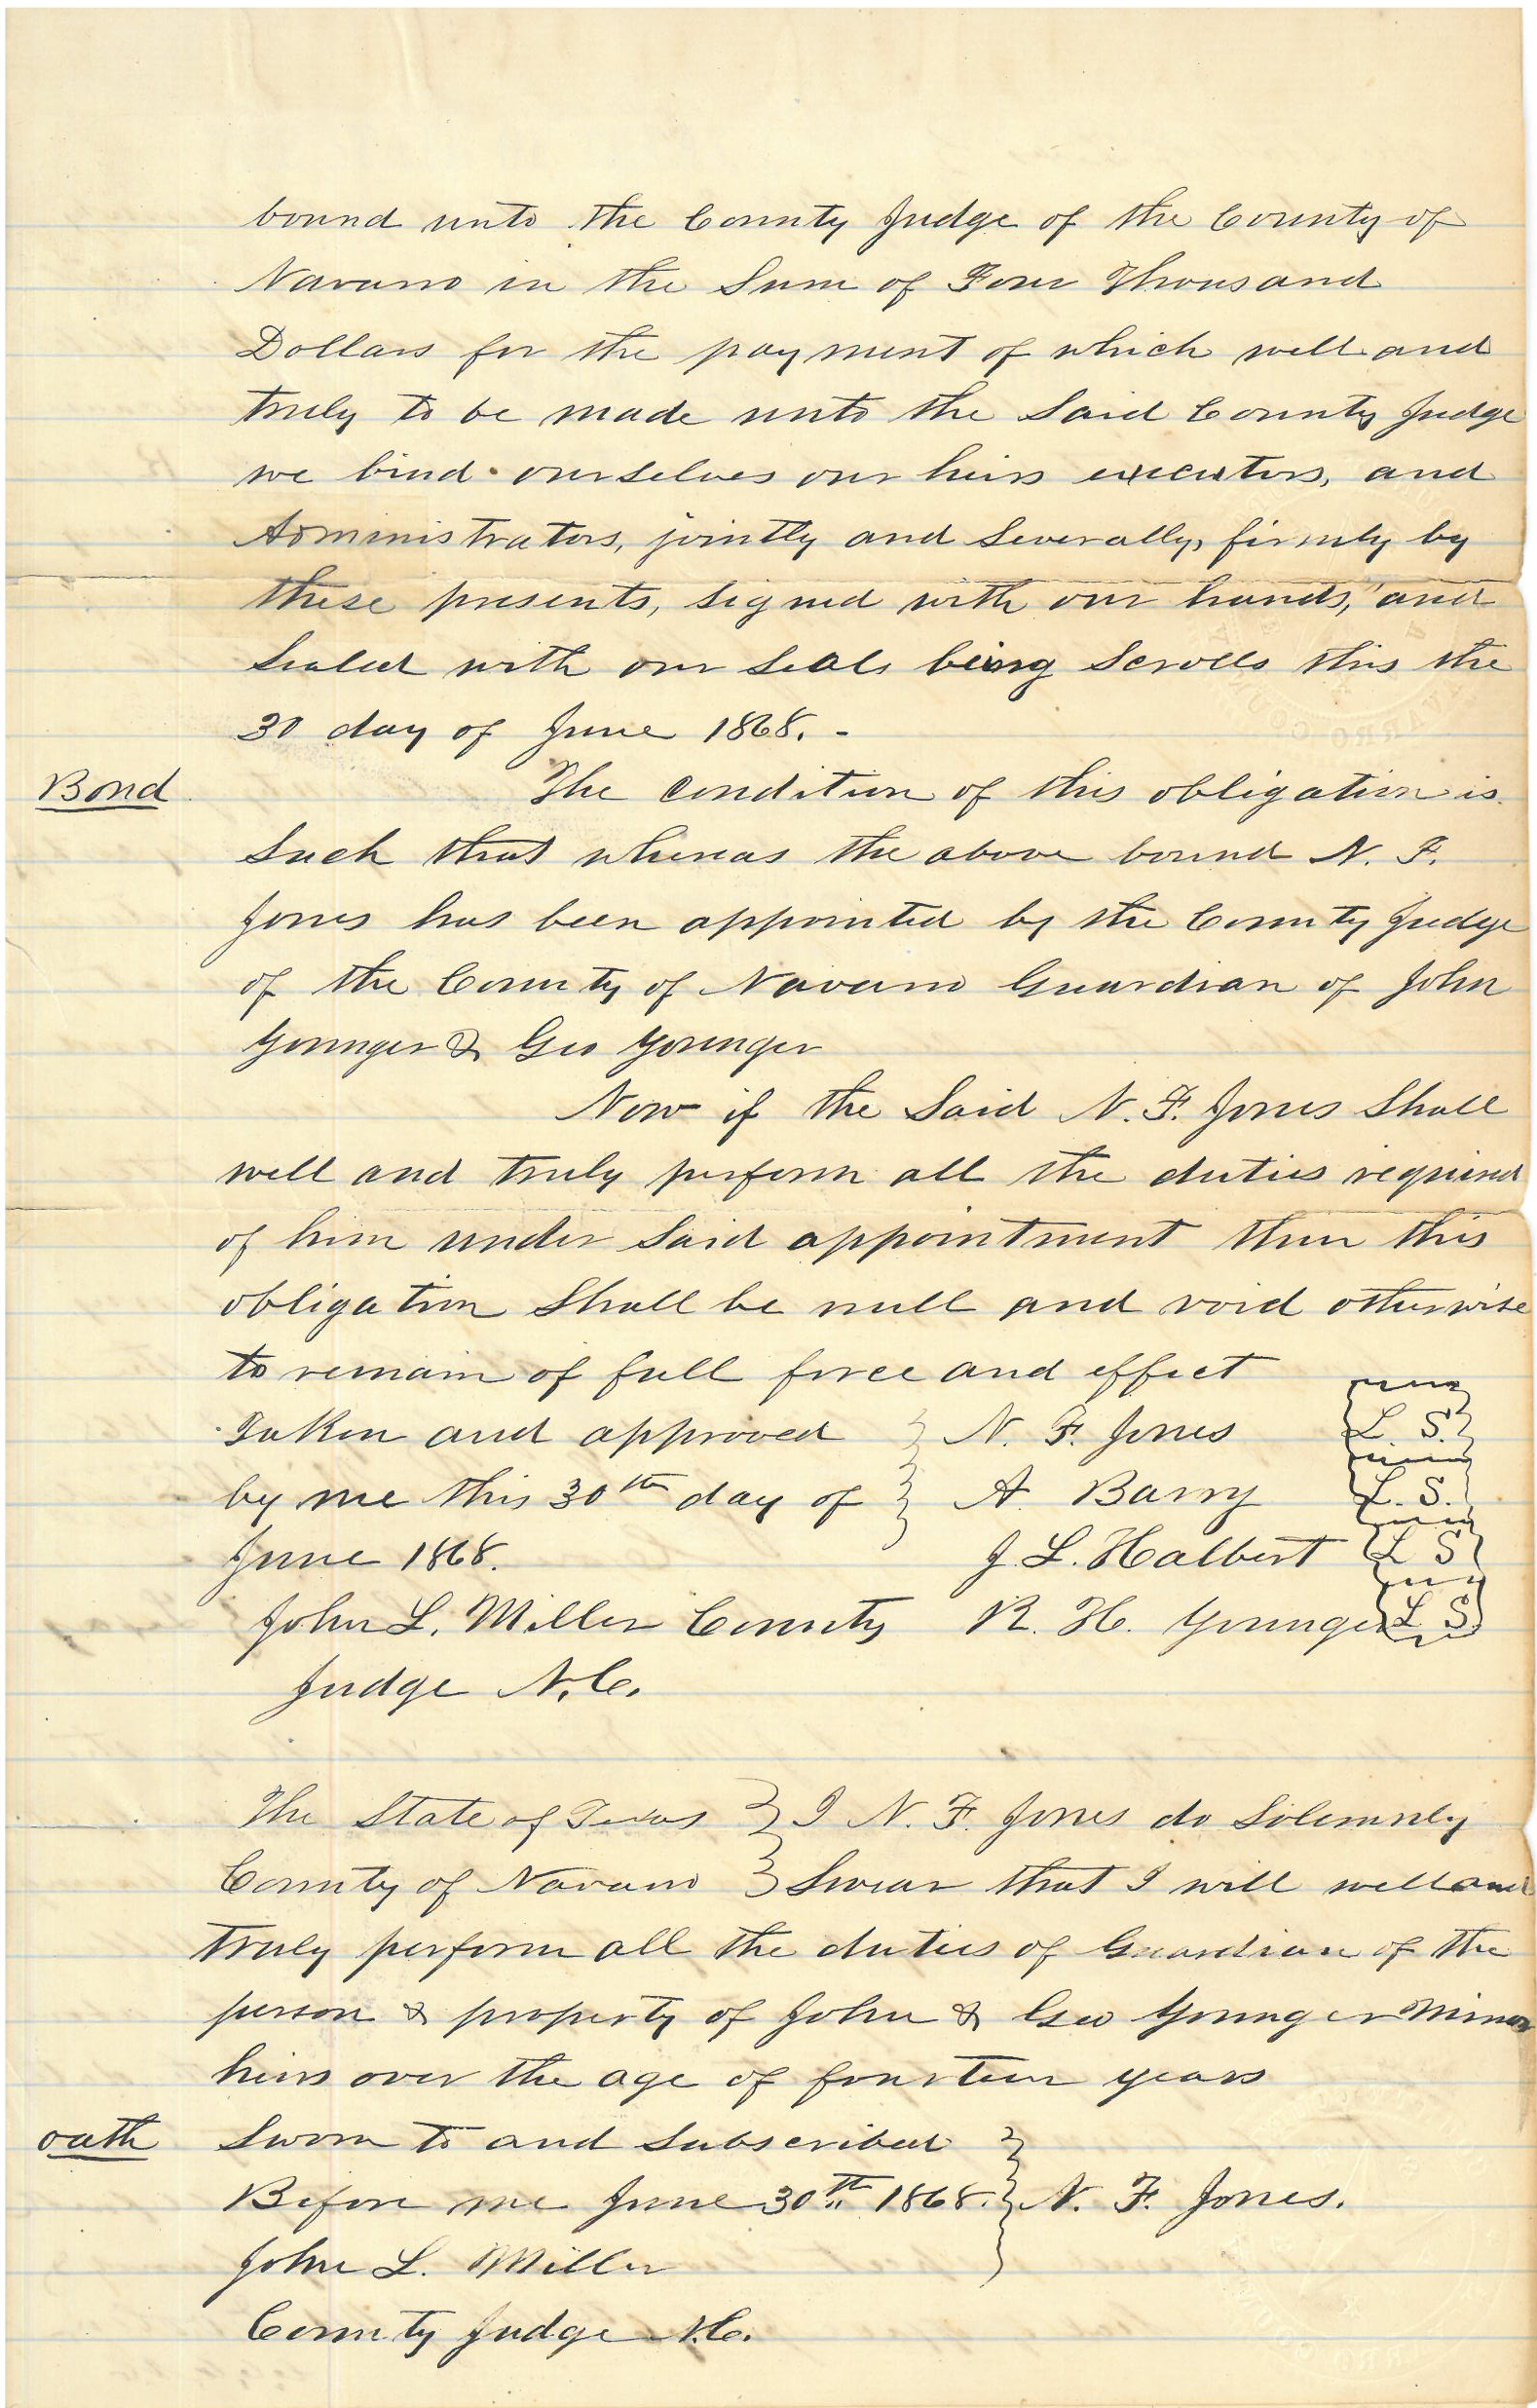 bound unto the County Judge of the County of
Navarro in the Sum of Four Thousand
Dollars for the payment of which well and
truly to be made unto the Said County Judge
we bind ourselves our heirs executors, and
Administrators, jointly and Severally, firmly by
these presents, signed with our hands, and
Sealed with our Seals being Scrolls this the
30 day of June 1868. -
Bond
The condition of this obligation is
Such that whereas the above bound N. F.
Jones has been appointed by the County Judge
of the County of Navarro Guardian of John
Younger & Geo Younger
Now if the Said N. F. Jones Shall
well and truly perform all the duties required
of him under Said appointment then this
obligation Shall be null and void otherwise
to remain of full force and effect
Taken and approved } N. F. Jones L. S.
by me this 30th day of } A. Barry L. S.
June 1868. J. L. Halbert L S
John L. Miller County R. H. Younger L S.
Judge N.C.
The State of Texas } I N. F. Jones do Solemnly
County of Navarro } Swear that I will well and
truly perform all the duties of Guardian of the
person & property of John & Geo Younger Minor
heirs over the age of fourteen years
oath Sworn to and Subscribed
Before me June 30th 1868. } N. F. Jones.
John L. Miller
County Judge N.C.